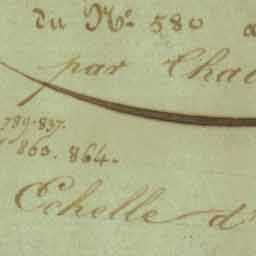 du N.º 580 a
par Cha
789-837.
863. 864.
Echelle d'